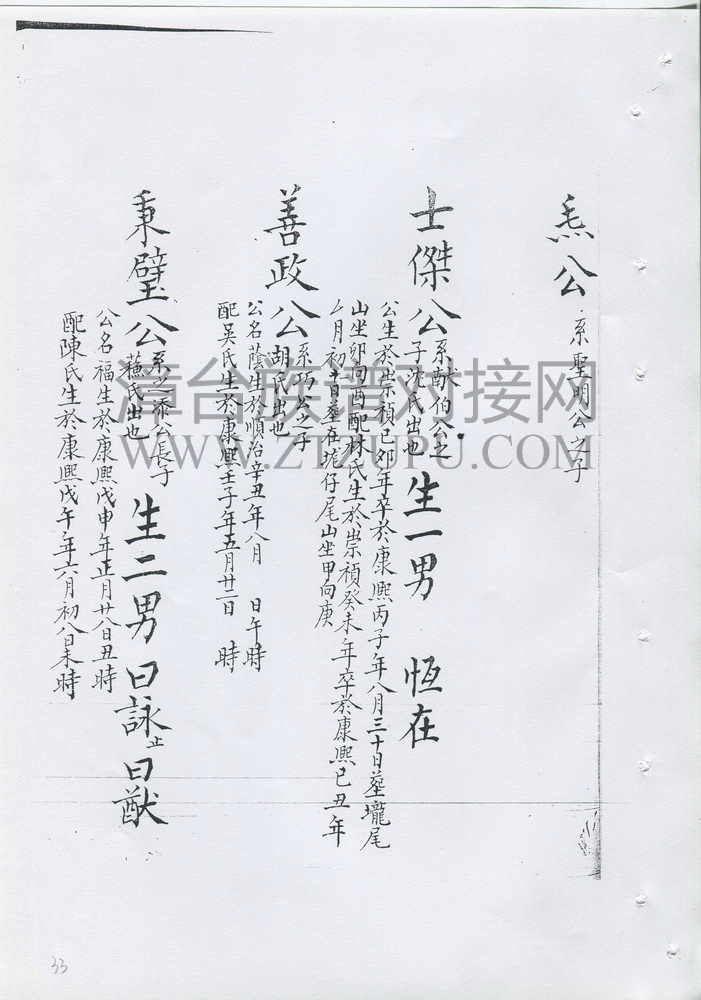 公 系聖明公之子
士傑公 系獻伯公之子沈氏出也 生一男 恆在
公生於崇禎己卯年卒於康熙丙子年八月三十日墓壠尾
山坐卯向酉配林氏生於崇禎癸未年卒於康熙己丑年
月初十日墓在埯仔尾山坐甲向庚
善政公 系巧公之子胡氏出也
公名蔭生於順治辛丑年八月 日午時
配吳氏生於康熙壬子年五月廿二日 時
秉璧公 系之添公長子蘓氏出也 生二男曰詠止曰猷
公名福生於康熙戊申年正月廿八日丑時
配陳氏生於康熙戊午年六月初八日未時
漳台族谱对接网
WWW.ZTZUPU.COM
33